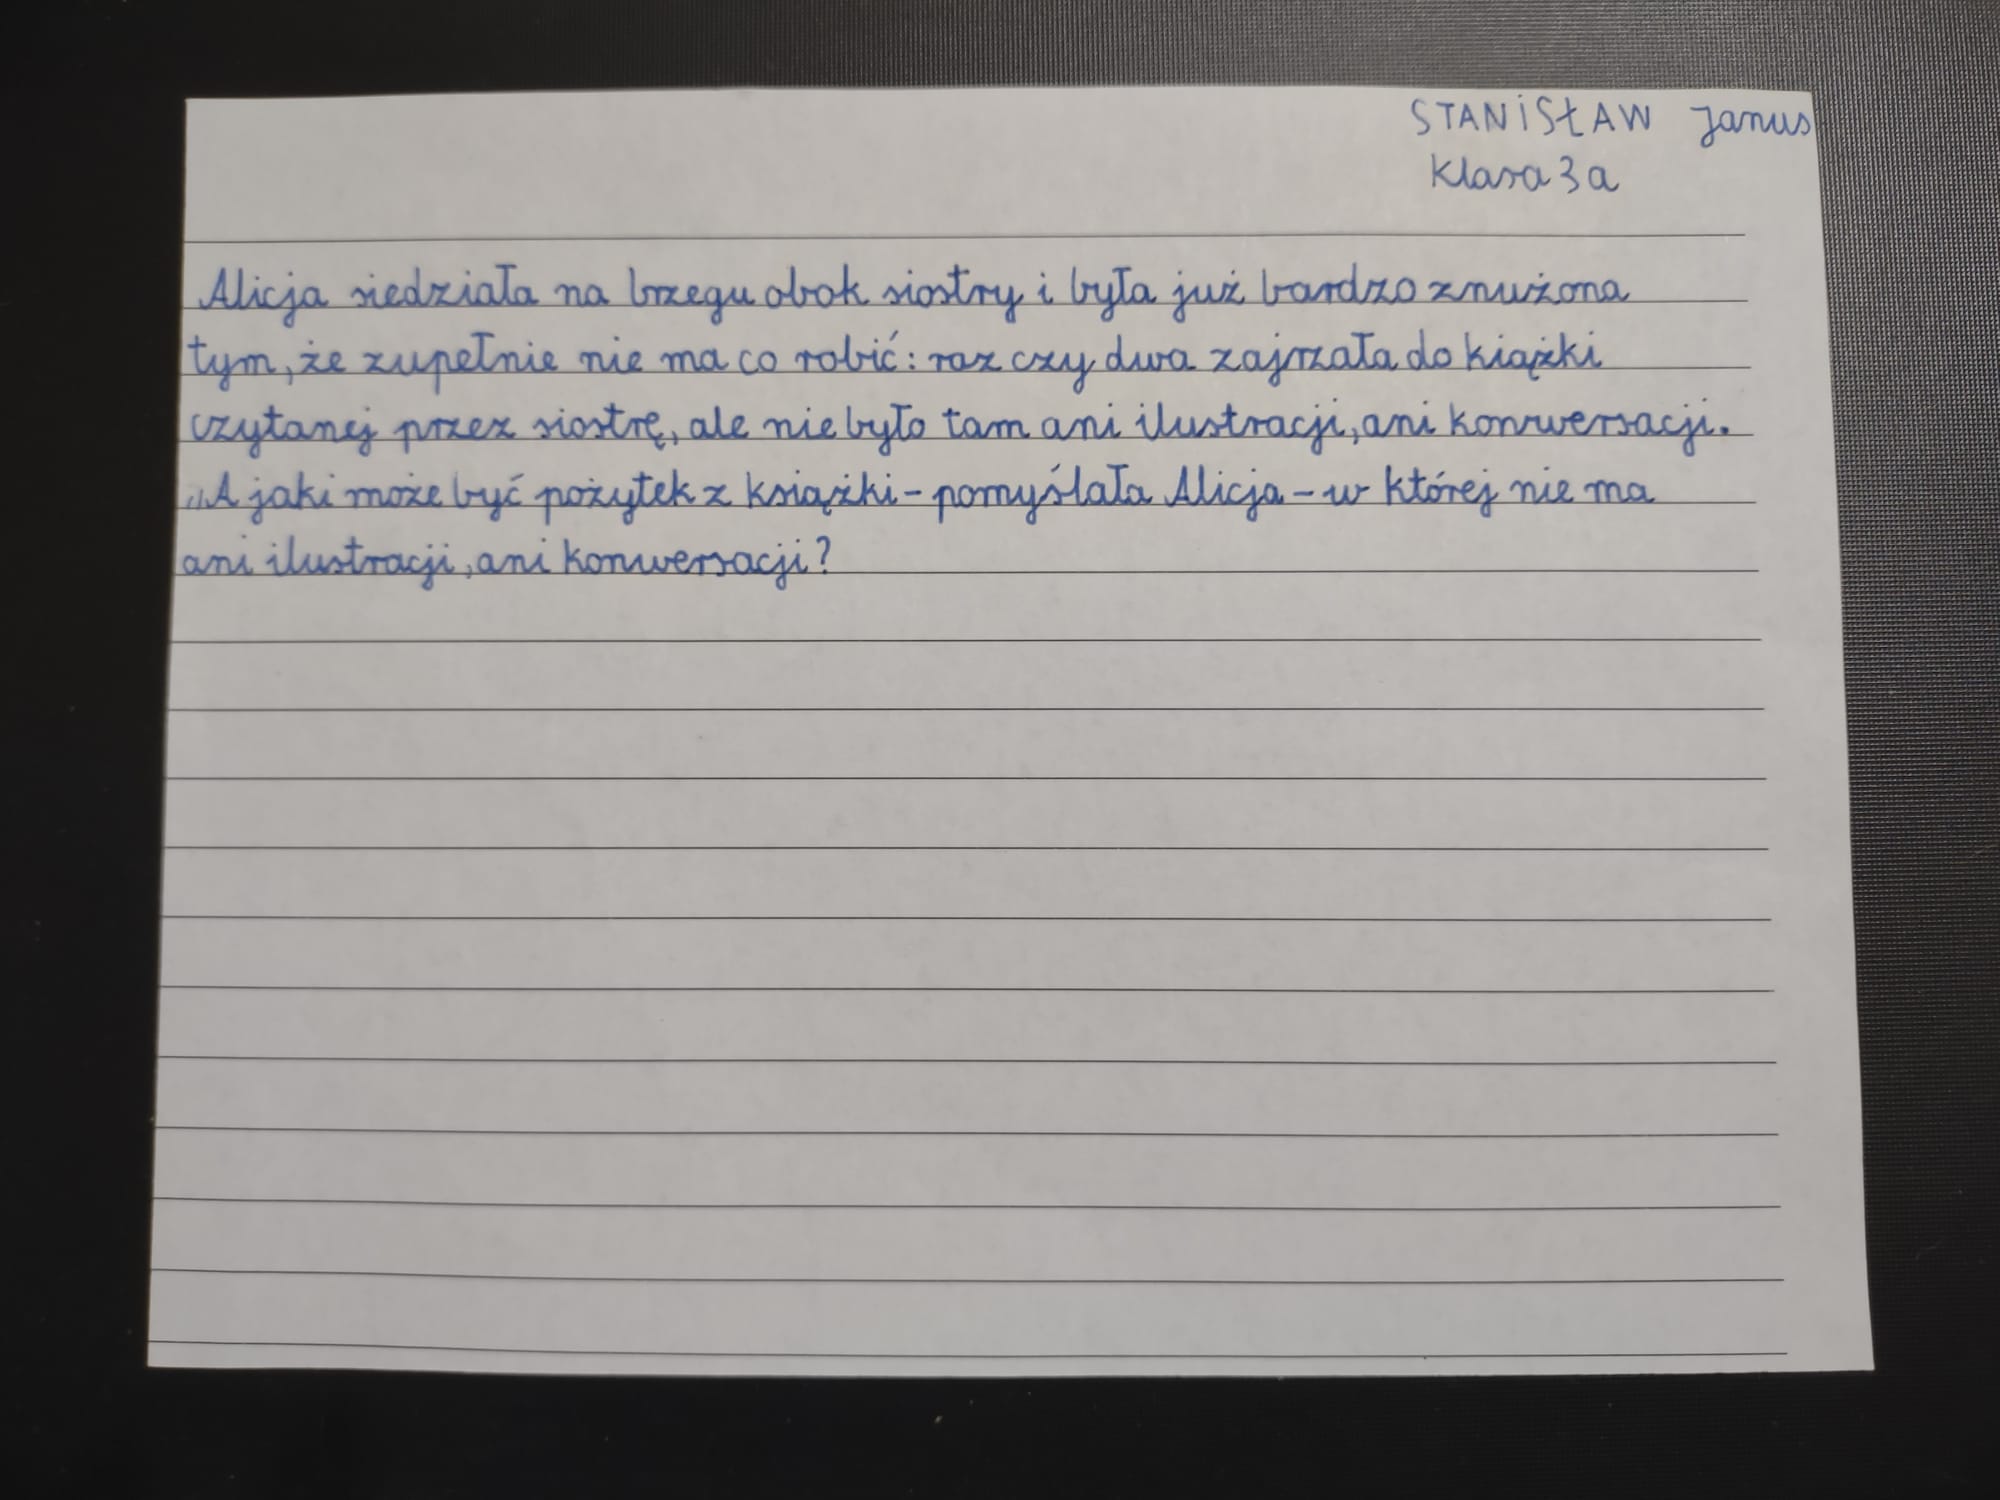 STANiSŁAW Janus
Klasa 3a
Alicja siedziała na brzegu obok siostry i była już bardzo znużona
tym, że zupełnie nie ma co robić: raz czy dwa zajrzała do kiążki
czytanej przez siostrę, ale nie było tam ani ilustracji, ani konwersacji.
„A jaki może być pożytek z książki – pomyślała Alicja – w której nie ma
ani ilustracji, ani konwersacji?